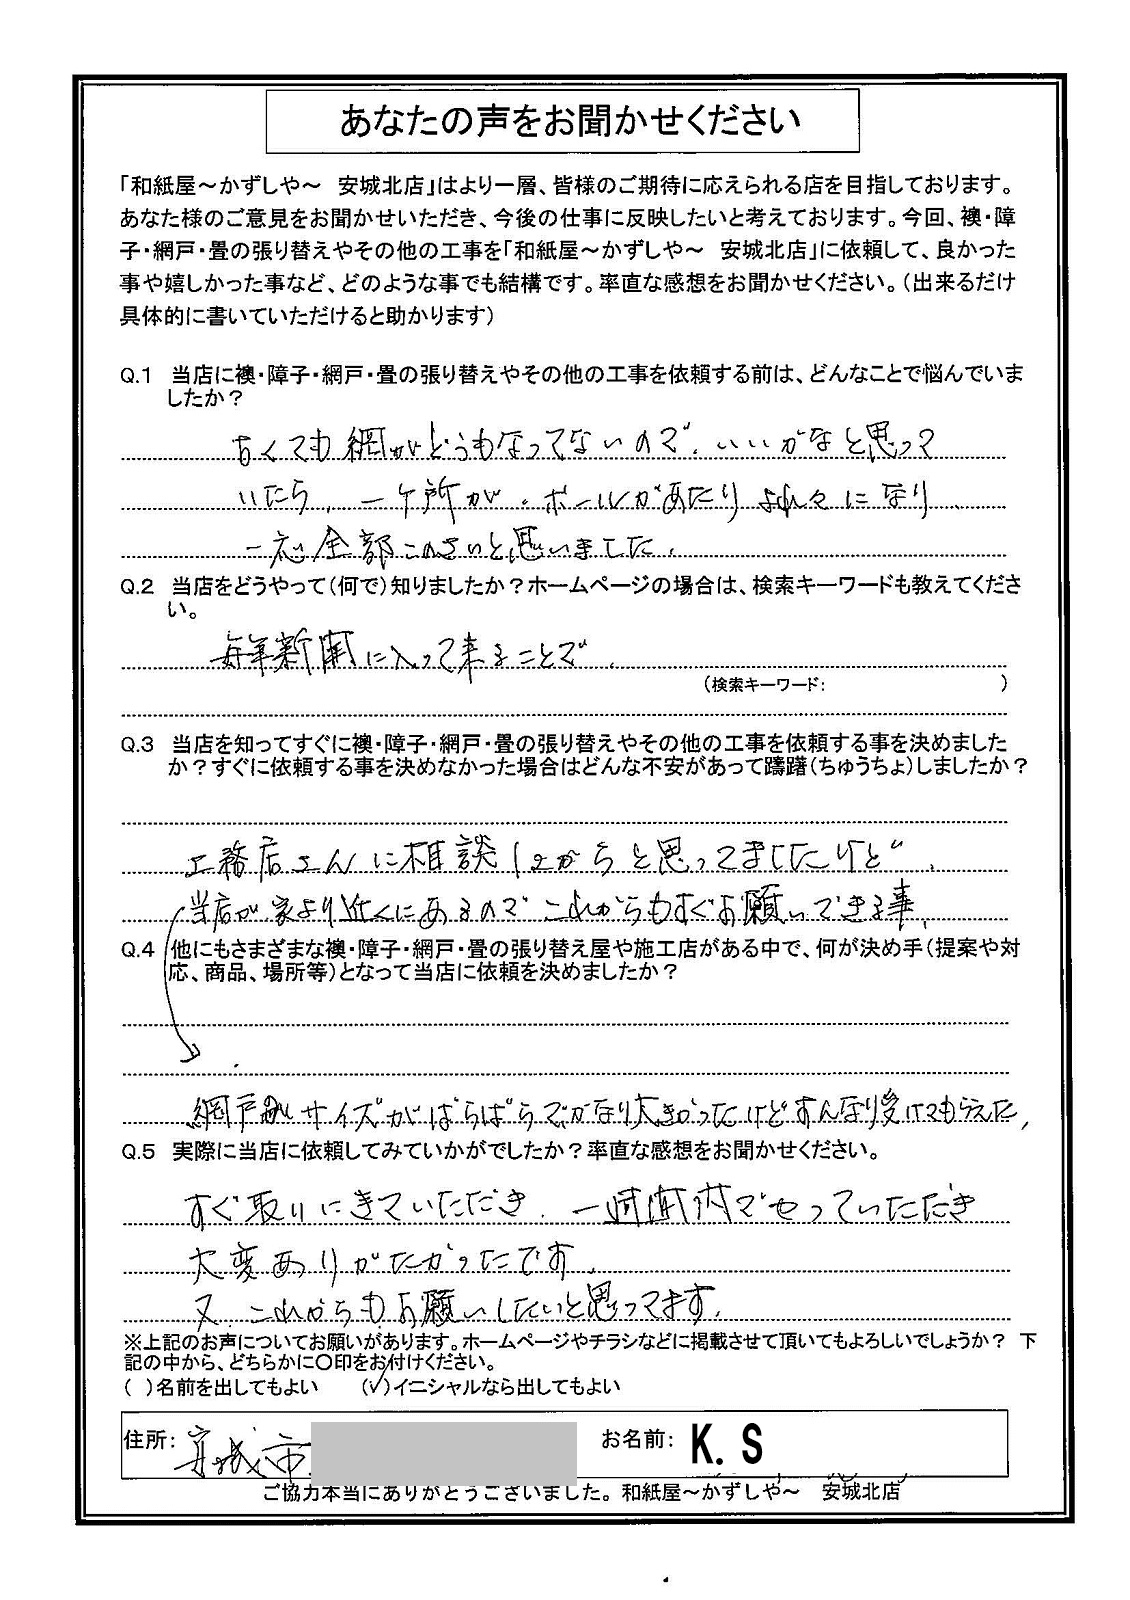 あなたの声をお聞かせください
「和紙屋～かずしや～　安城北店」はより一層、皆様のご期待に応えられる店を目指しております。
あなた様のご意見をお聞かせいただき、今後の仕事に反映したいと考えております。今回、襖・障
子・網戸・畳の張り替えやその他の工事を「和紙屋～かずしや～　安城北店」に依頼して、良かった
事や嬉しかった事など、どのような事でも結構です。率直な感想をお聞かせください。（出来るだけ
具体的に書いていただけると助かります）
Q.1　当店に襖・障子・網戸・畳の張り替えやその他の工事を依頼する前は、どんなことで悩んでいま
したか？
古くても網がどうもなってないので、いいかなと思って
いたら、一ケ所が、ボールがあたり よれよれになり
一応全部 と思いました。
Q.2　当店をどうやって（何で）知りましたか？ホームページの場合は、検索キーワードも教えてくださ
い。
毎年新聞に入って来ることで、
（検索キーワード：　　　　　　　　　　）
Q.3　当店を知ってすぐに襖・障子・網戸・畳の張り替えやその他の工事を依頼する事を決めました
か？すぐに依頼する事を決めなかった場合はどんな不安があって躊躇（ちゅうちょ）しましたか？
工務店さんに相談してからと思ってましたけど、
当店が家より近くにあるので これからもすぐお願いできる事、
Q.4　他にもさまざまな襖・障子・網戸・畳の張り替え屋や施工店がある中で、何が決め手（提案や対
応、商品、場所等）となって当店に依頼を決めましたか？
網戸 サイズがばらばらでかなり大きかったけどすんなり受けてもらえた、
Q.5　実際に当店に依頼してみていかがでしたか？率直な感想をお聞かせください。
すぐ取りにきていただき、一週間内でやっていただき
大変ありがたかったです。
又、これからもお願いしたいと思ってます。
※上記のお声についてお願いがあります。ホームページやチラシなどに掲載させて頂いてもよろしいでしょうか？　下
記の中から、どちらかに〇印をお付けください。
（　）名前を出してもよい　　（✓）イニシャルなら出してもよい
住所：安城市　　お名前：K. S
ご協力本当にありがとうございました。和紙屋～かずしや～　安城北店